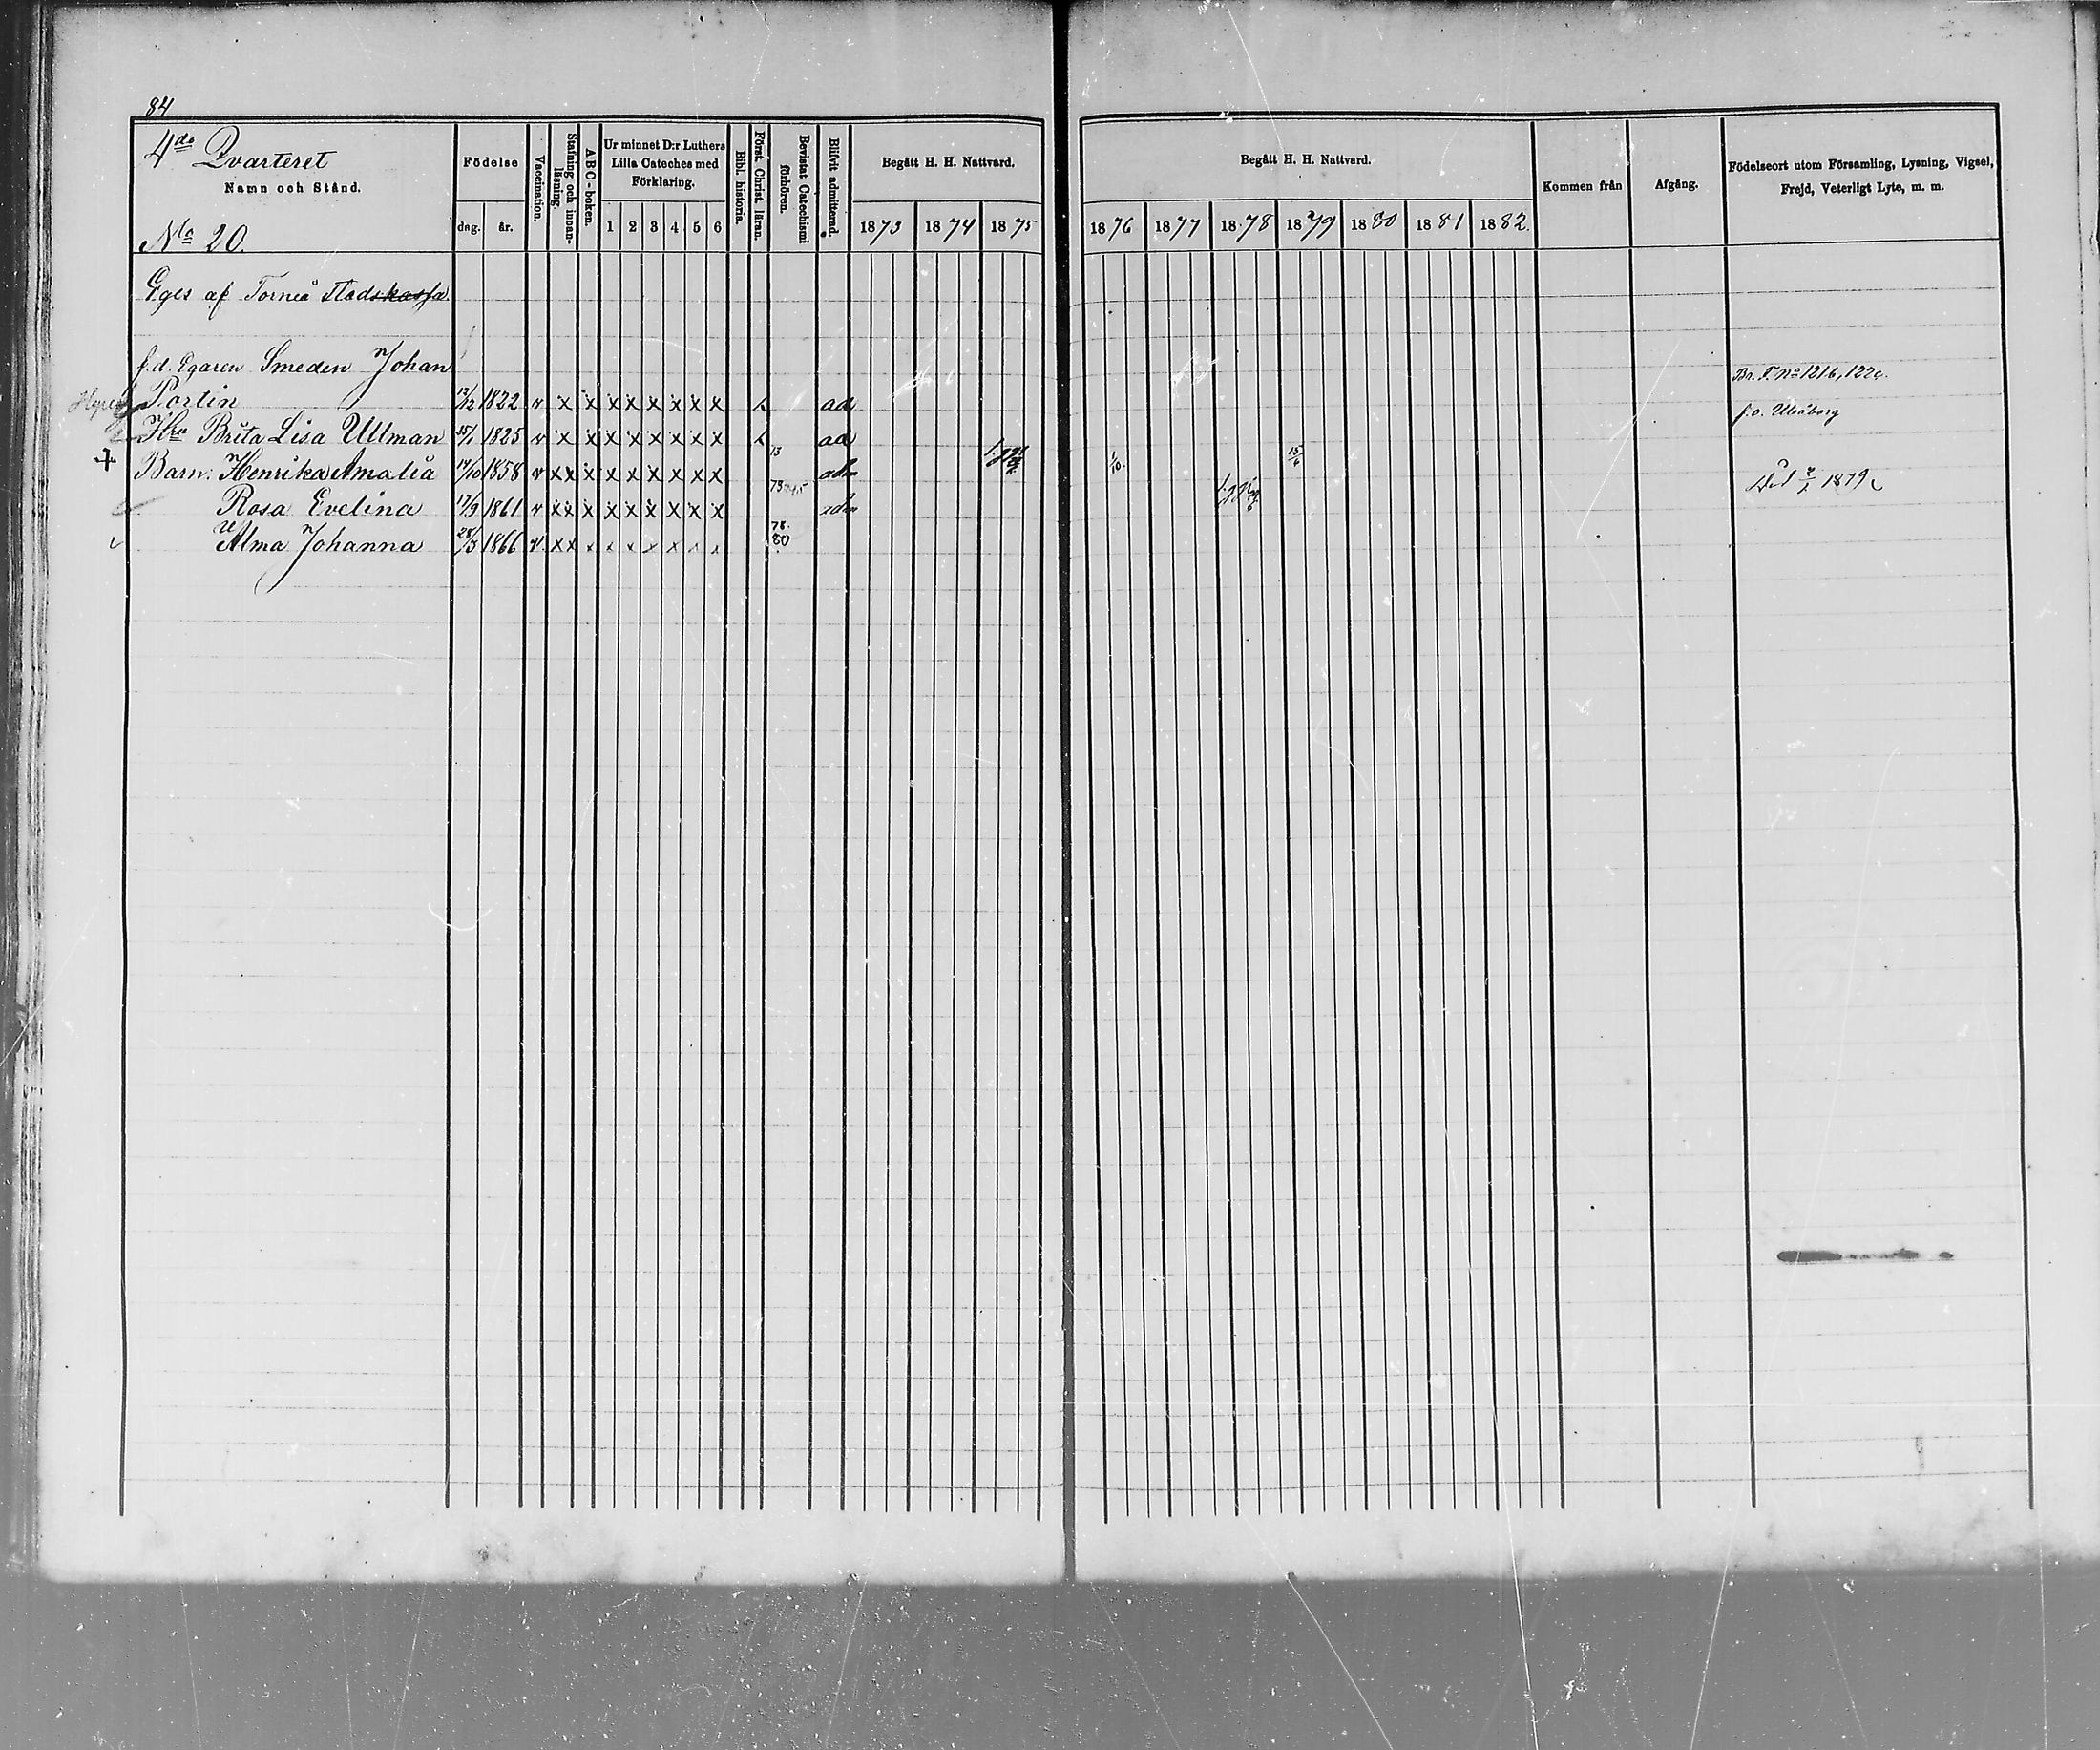 84
4de Qvarteret
Namn och Stånd.
No 20.
Födelse
dag. år.
Vaccination.
Stafning och innan-läsning.
A B C-boken.
Ur minnet D:r Luthers
Lilla Cateches med
Förklaring.
1 2 3 4 5 6
Bibl. historia.
Först. Christ. läran.
Bevistat Catechismi förhören.
Blifvit admitterad.
Begått H. H. Nattvard.
1873 1874 1875
Begått H. H. Nattvard.
1876 1877 1878 1879 1880 1881 1882.
Kommen från
Afgång.
Födelseort utom Församling, Lysning, Vigsel,
Frejd, Veterligt Lyte, m. m.
Eges af Torneå Stadskassa.
f.d. Egaren Smeden Johan
Portin 12/12 1822 v x x x x x x x x ad Br. F. No 1216,
Hru Brita Lisa Ullman 25/1 1825 v x x x x x x x x ad f. o. Uleåborg
Barn: Henrika Amalia 14/10 1858 v x x x x x x x x x 73 adm 1/10. 15/6 Död 1879
Rosa Evelina 17/9 1861 v x x x x x x x x x 73 adm
Alma Johanna 28/3 1866 v x x x x x x x x x 78. 80